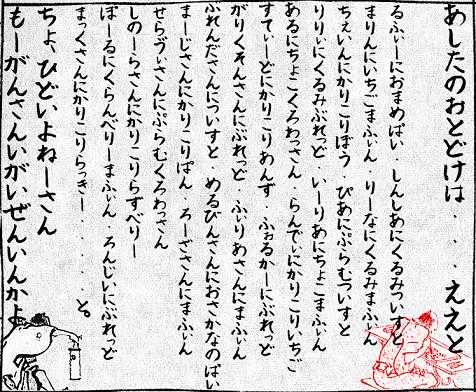 あしたのおとどけは...ええと
るふぃーにおまめぱい.しんしあにくるみついすと
まりんにいちごまふぃん.りーなにくるみまふぃん
ちぇいんにかりこりぼう.ぴあにぷらむついすと
りりぃにくるみぶれっど.いーりあにちょこまふぃん
あるにちょこくろわっさん.らんでぃにかりこり.いちご
すてぃーどにかりこりめんず.ふぉるかーにぶれっど
がりくそんさんにぶれっど.ふぃりあさんにまふぃん
ぶれんださんについすと めるびんさんにおさかなのぱい
まーじさんにかりこりぱん.ろーざさんにまふぃん
せらづぃさんにぷらむくろわさん
しのーらさんにかりこりらずべりー
ぽーるにくらんべりーまふぃん.ろんじいにぶれっど
まっくさんにかりこりらっきー.....と。
ちょ、ひどいよねーさん
もーがんさんいがいぜんいんかよ